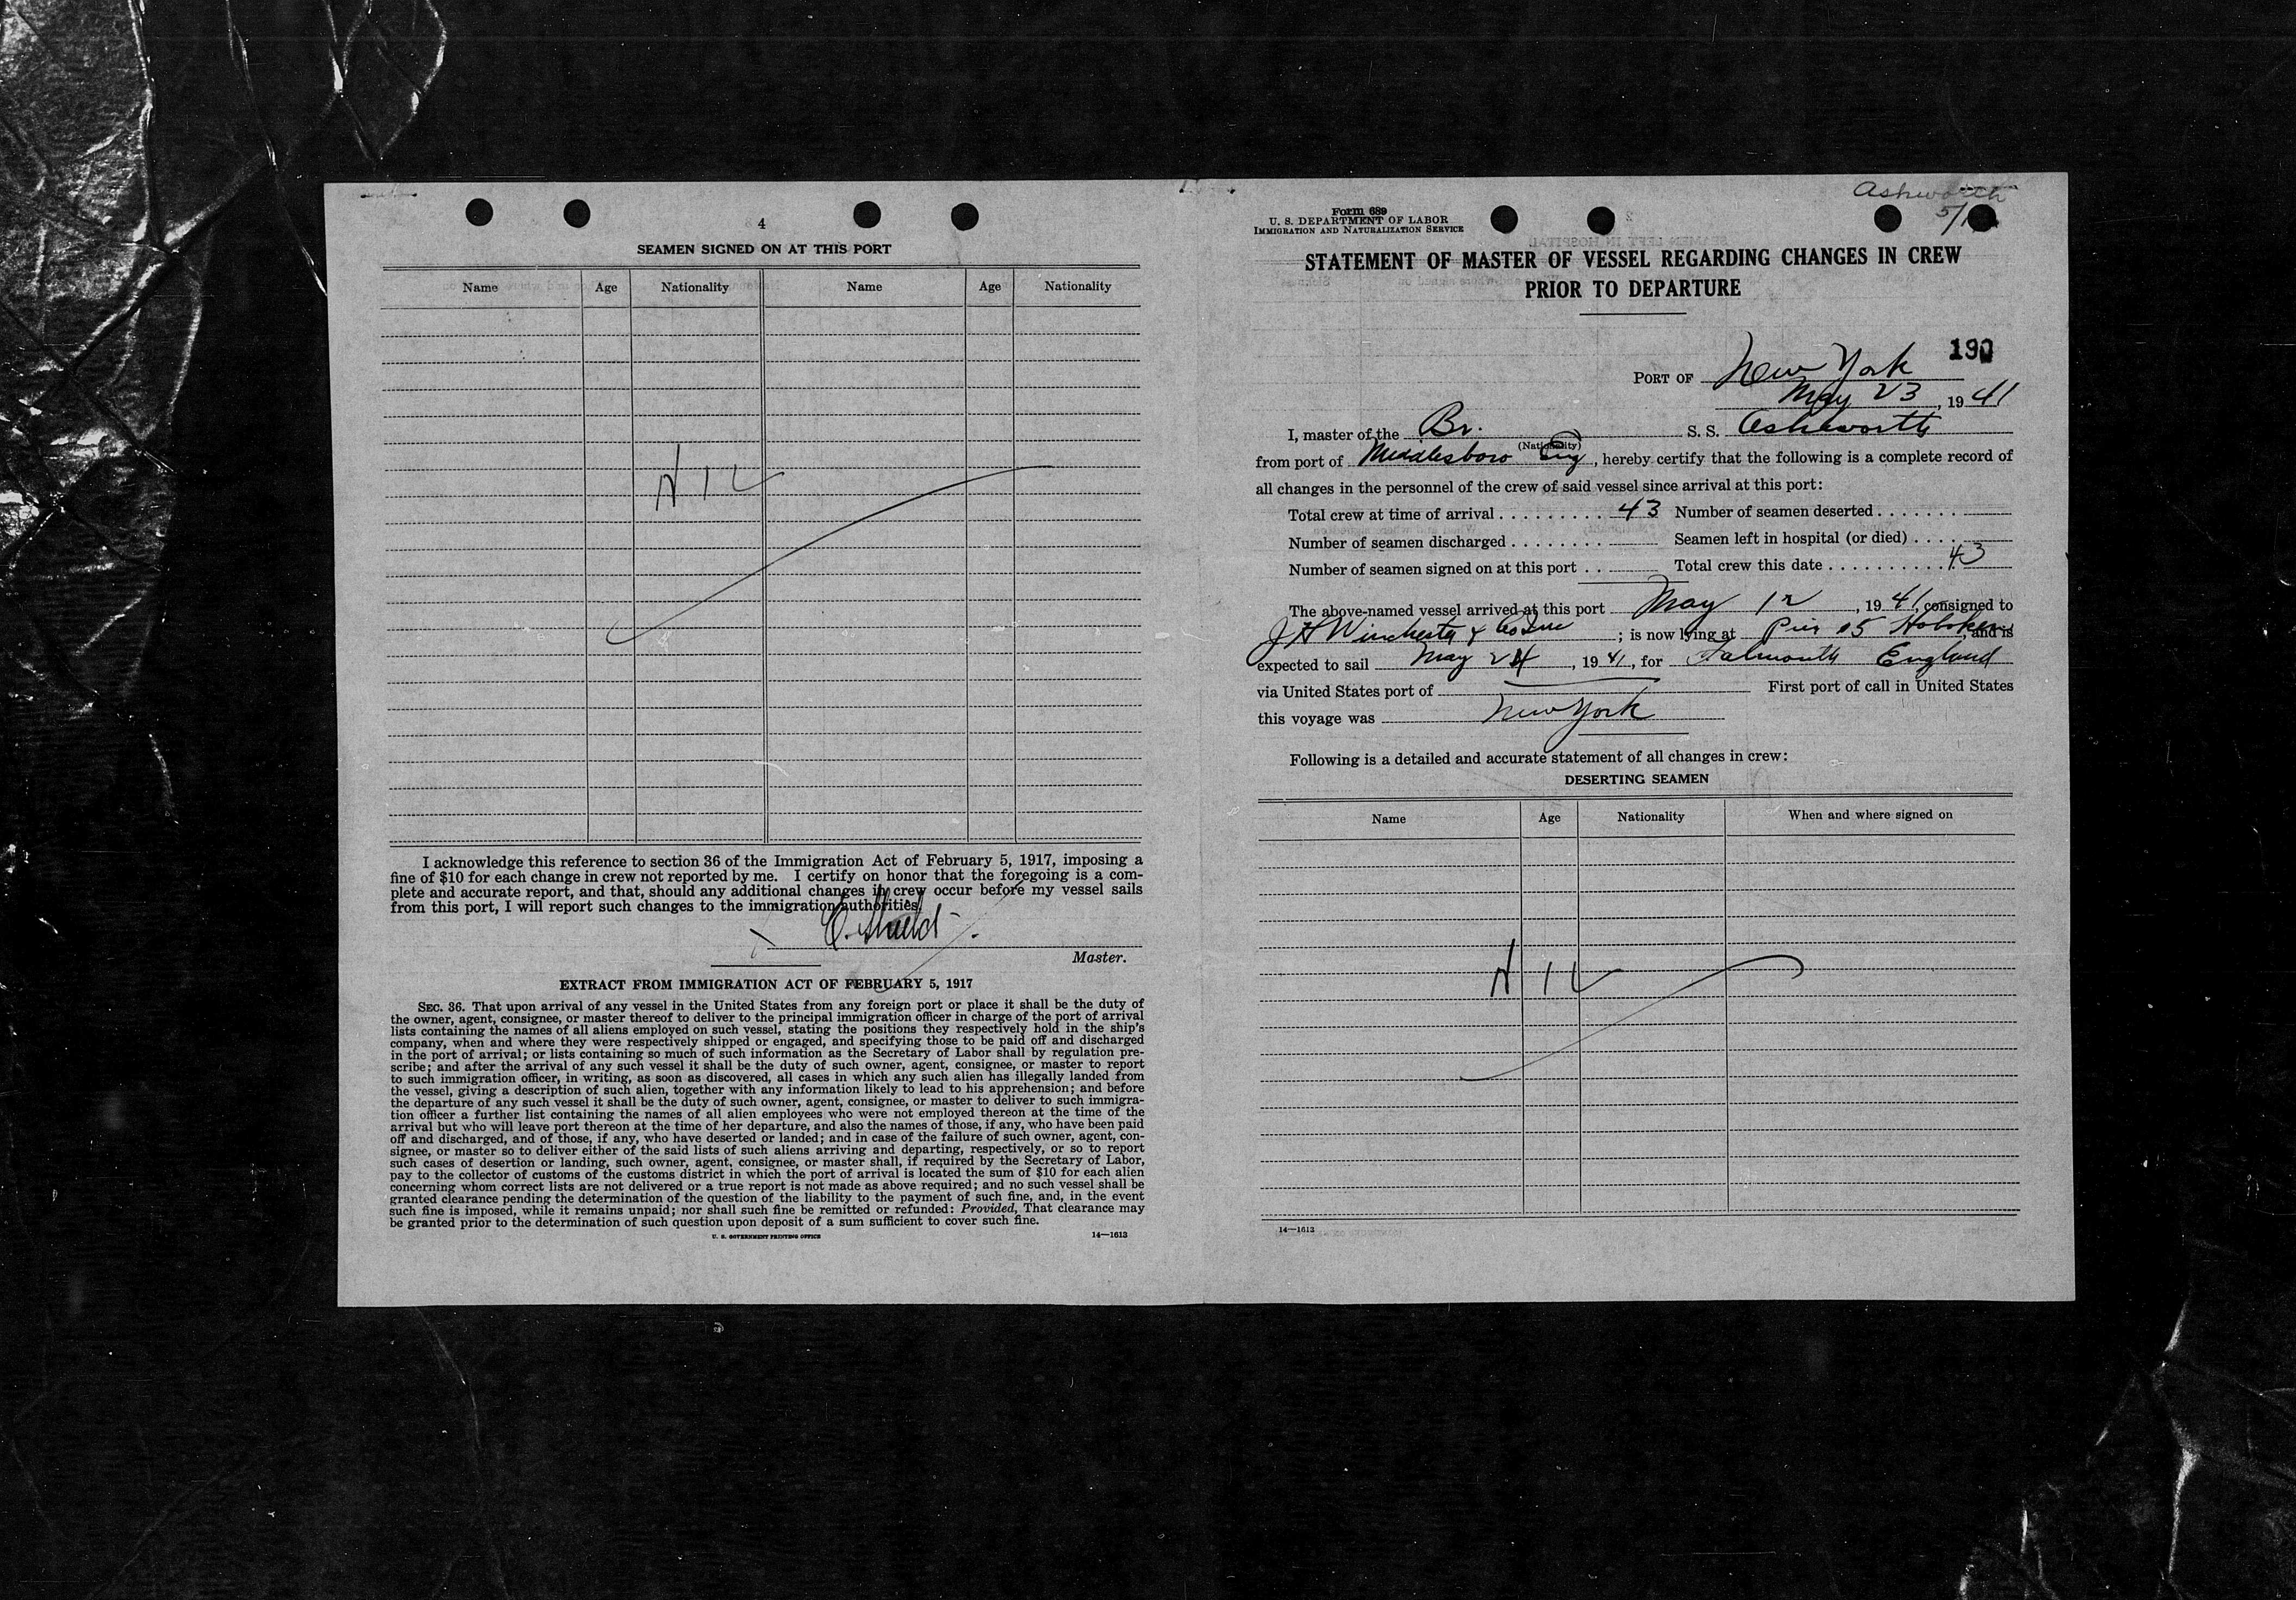 4
SEAMEN SIGNED ON AT THIS PORT
Name Age Nationality Name Age Nationality
NIL
I acknowledge this reference to section 36 of the Immigration Act of February 5, 1917, imposing a
fine of $10 for each change in crew not reported by me. I certify on honor that the foregoing is a com-
plete and accurate report, and that, should any additional changes in crew occur before my vessel sails
from this port, I will report such changes to the immigration authorities.
Master.
EXTRACT FROM IMMIGRATION ACT OF FEBRUARY 5, 1917
SEC. 36. That upon arrival of any vessel in the United States from any foreign port or place it shall be the duty of
the owner, agent, consignee, or master thereof to deliver to the principal immigration officer in charge of the port of arrival
lists containing the names of all aliens employed on such vessel, stating the positions they respectively hold in the ship's
company, when and where they were respectively shipped or engaged, and specifying those to be paid off and discharged
in the port of arrival; or lists containing so much of such information as the Secretary of Labor shall by regulation pre-
scribe; and after the arrival of any such vessel it shall be the duty of such owner, agent, consignee, or master to report
to such immigration officer, in writing, as soon as discovered, all cases in which any such alien has illegally landed from
the vessel, giving a description of such alien, together with any information likely to lead to his apprehension; and before
the departure of any such vessel it shall be the duty of such owner, agent, consignee, or master to deliver to such immigra-
tion officer a further list containing the names of all alien employees who were not employed thereon at the time of the
arrival but who will leave port thereon at the time of her departure, and also the names of those, if any, who have been paid
off and discharged, and of those, if any, who have deserted or landed; and in case of the failure of such owner, agent, con-
signee, or master so to deliver either of the said lists of such aliens arriving and departing, respectively, or so to report
such cases of desertion or landing, such owner, agent, consignee, or master shall, if required by the Secretary of Labor,
pay to the collector of customs of the customs district in which the port of arrival is located the sum of $10 for each alien
concerning whom correct lists are not delivered or a true report is not made as above required; and no such vessel shall be
granted clearance pending the determination of the question of the liability to the payment of such fine, and, in the event
such fine is imposed, while it remains unpaid; nor shall such fine be remitted or refunded: Provided, That clearance may
be granted prior to the determination of such question upon deposit of a sum sufficient to cover such fine.
U. S. GOVERNMENT PRINTING OFFICE 14—1613
Ashworth
Form 689
U. S. DEPARTMENT OF LABOR
IMMIGRATION AND NATURALIZATION SERVICE
STATEMENT OF MASTER OF VESSEL REGARDING CHANGES IN CREW
PRIOR TO DEPARTURE
190
PORT OF New York
May 23, 1941
I, master of the Br. S. S. Ashworth
(Nationality)
from port of Middlesboro Eng, hereby certify that the following is a complete record of
all changes in the personnel of the crew of said vessel since arrival at this port:
Total crew at time of arrival . . . . . . . . . 43 Number of seamen deserted . . . . . . .
Number of seamen discharged . . . . . . . . Seamen left in hospital (or died) . . . .
Number of seamen signed on at this port . . Total crew this date . . . . . . . . . . 43
The above-named vessel arrived at this port May 12, 1941, consigned to
J H Winchester & Co Inc; is now lying at Pier 5 Hoboken, and is
expected to sail May 24, 1941, for Falmouth England
via United States port of First port of call in United States
this voyage was New York
Following is a detailed and accurate statement of all changes in crew:
DESERTING SEAMEN
Name Age Nationality When and where signed on
NIL
14—1613